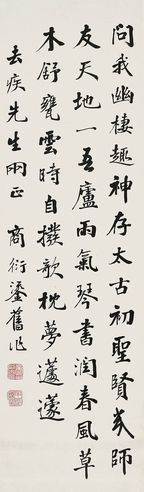 問我幽棲趣神存太古初聖賢師
友天地一吾廬雨氣琴書潤春風草
木舒甕雲時自撥欹枕夢蘧蘧
去疾先生兩正　商衍鎏舊作